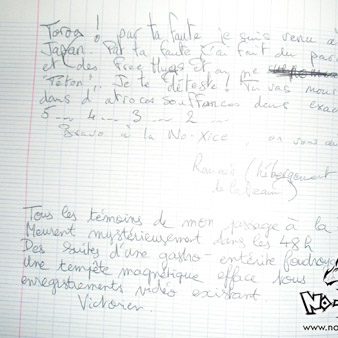 Toroo ! par ta faute je suis venu à
Japan.. Par ta faute j'ai fait du
et des Free Hugs. Et on me
"Téton"! Je te déteste ! Tu vas mour
dans d'atroces souffrances dans exac
5... 4... 3... 2...
Bravo à la No-Xice, on vous
(hébergement
Tous les témoins de mon passage à la
Meurent mystérieusement dans les 48h
Des suites d'une gastro-entérite foudroya
une tempête magnétique efface tous
enregistrements vidéo existant.
Victoren
No-
www.no